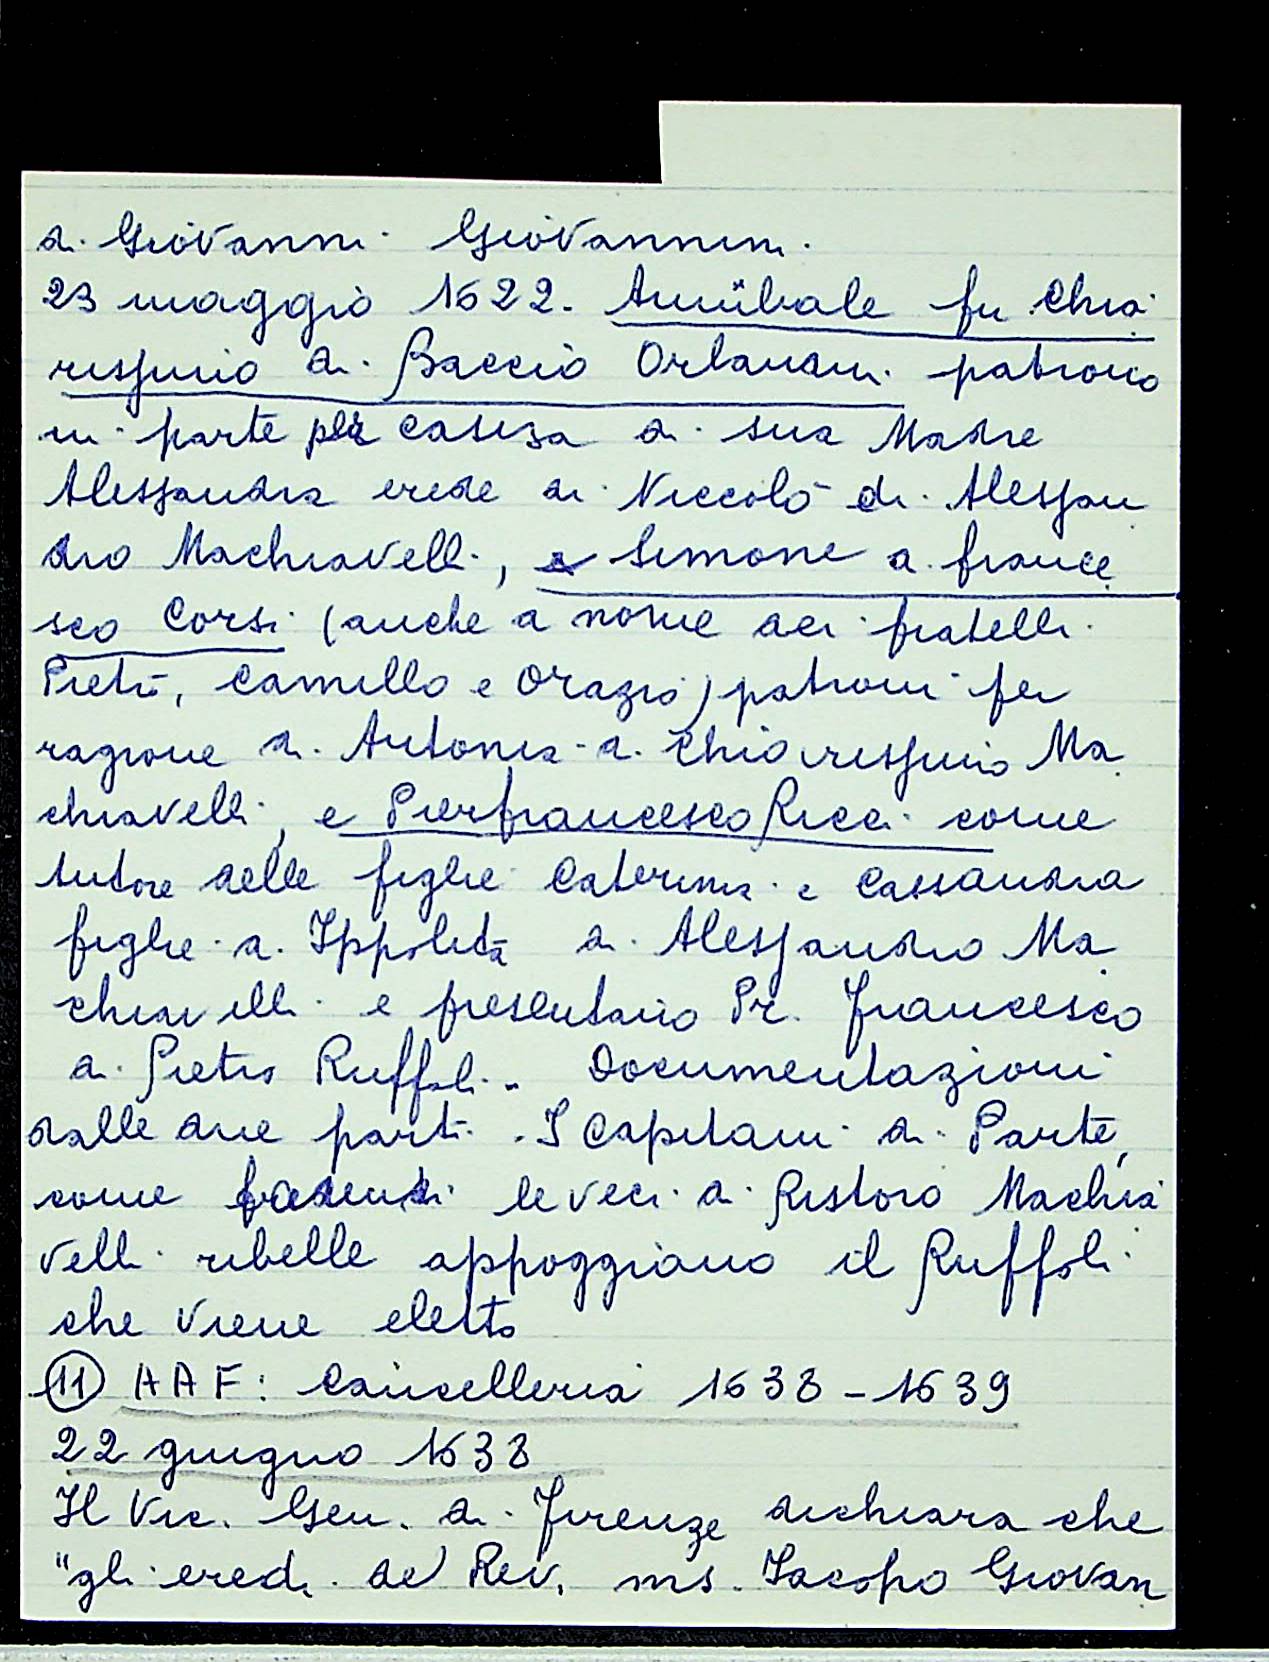 di Giovanni Giovannini.
23 maggio 1622. Annibale fu Chia
rissimo di Baccio Orlandini patrono
in parte per causa di sua Madre
Alessandra erede di Niccolò di Alessan
dro Machiavelli, e Simone di France
sco Corsi (anche a nome dei fratelli
Pietro, Camillo e Orazio) patroni per
ragione di Antonia di Chiarissimo Ma
chiavelli, e Pierfrancesco Ricci come
tutore delle figlie Caterina e Cassandra
figlie di Ippolita di Alessandro Ma
chiavelli e presentano Pr. Francesco
di Pietro Ruffoli. Documentazioni
dalle due parti. I Capitani di Parte,
come facenti le veci di Ristoro Machia
velli ribelle appoggiano il Ruffoli
che viene eletto
(11) AAF: Cancelleria 1638-1639
22 giugno 1638
Il Vic. Gen. di Firenze dichiara che
"gli eredi del Rev. ms. Iacopo Giovan